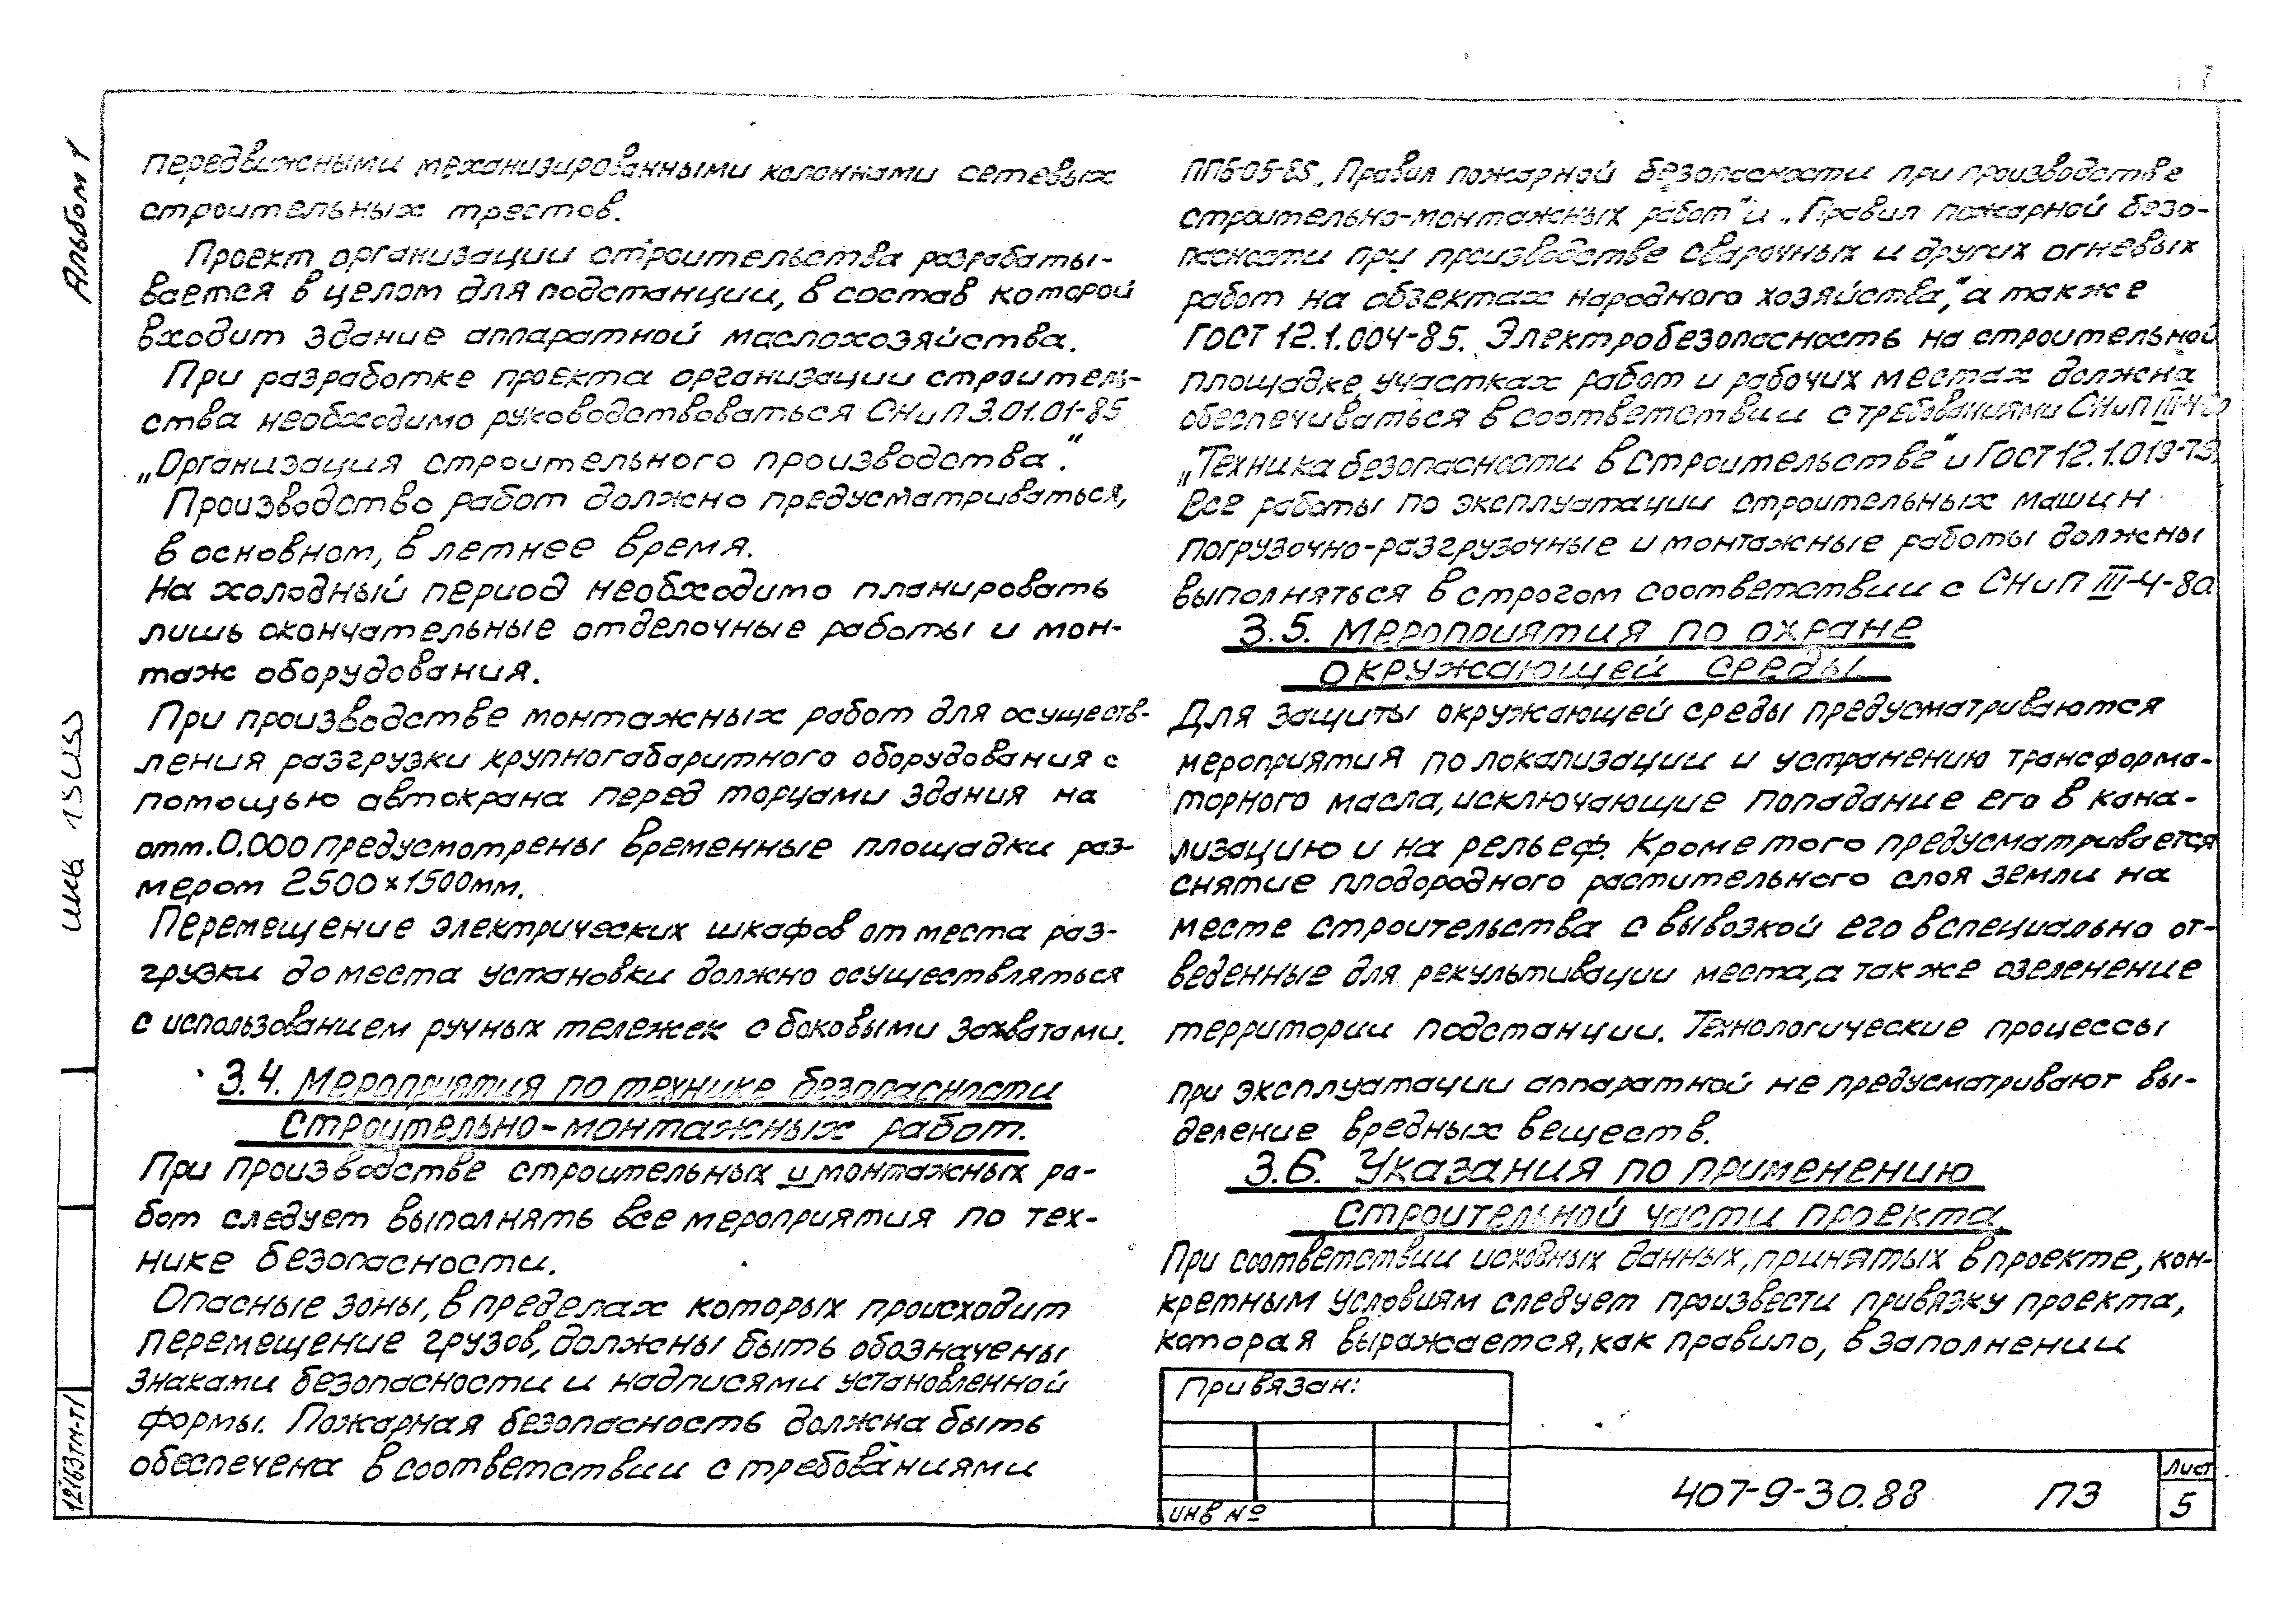 Альбом 1
передвижными механизированными колоннами сетевых
строительных трестов.
Проект организации строительства разрабаты-
вается в целом для подстанции, в состав которой
входит здание аппаратной маслохозяйства.
При разработке проекта организации строитель-
ства необходимо руководствоваться СНиП 3.01.01-85
„Организация строительного производства“.
Производство работ должно предусматриваться,
в основном, в летнее время.
На холодный период необходимо планировать
лишь окончательные отделочные работы и мон-
таж оборудования.
При производстве монтажных работ для осуществ-
ления разгрузки крупногабаритного оборудования с
помощью автокрана перед торцами здания на
отм. 0.000 предусмотрены временные площадки раз-
мером 2500×1500мм.
Перемещение электрических шкафов от места раз-
грузки до места установки должно осуществляться
с использованием ручных тележек с боковыми захватами.
3.4. Мероприятия по технике безопасности
строительно-монтажных работ.
При производстве строительных и монтажных ра-
бот следует выполнять все мероприятия по тех-
нике безопасности.
Опасные зоны, в пределах которых происходит
перемещение грузов, должны быть обозначены
знаками безопасности и надписями установленной
формы. Пожарная безопасность должна быть
обеспечена в соответствии с требованиями
ППБ-05-85 „Правил пожарной безопасности при производстве
строительно-монтажных работ“ и „Правил пожарной безо-
пасности при производстве сварочных и других огневых
работ на объектах народного хозяйства“, а также
ГОСТ 12.1.004-85. Электробезопасность на строительной
площадке, участках работ и рабочих местах должна
обеспечиваться в соответствии с требованиями СНиП III-4-80
„Техника безопасности в строительстве“ и ГОСТ 12.1.013-78.
Все работы по эксплуатации строительных машин
погрузочно-разгрузочные и монтажные работы должны
выполняться в строгом соответствии с СНиП III-4-80.
3.5. Мероприятия по охране
окружающей среды.
Для защиты окружающей среды предусматриваются
мероприятия по локализации и устранению трансформа-
торного масла, исключающие попадание его в кана-
лизацию и на рельеф. Кроме того предусматривается
снятие плодородного растительного слоя земли на
месте строительства с вывозкой его в специально от-
веденные для рекультивации места, а также озеленение
территории подстанции. Технологические процессы
при эксплуатации аппаратной не предусматривают вы-
деление вредных веществ.
3.6. Указания по применению
строительной части проекта
При соответствии исходных данных, принятых в проекте, кон-
кретным условиям следует произвести привязку проекта,
которая выражается, как правило, в заполнении
Привязан:
инв №
407-9-30.88 ПЗ
Лист
5
12163тм-т1